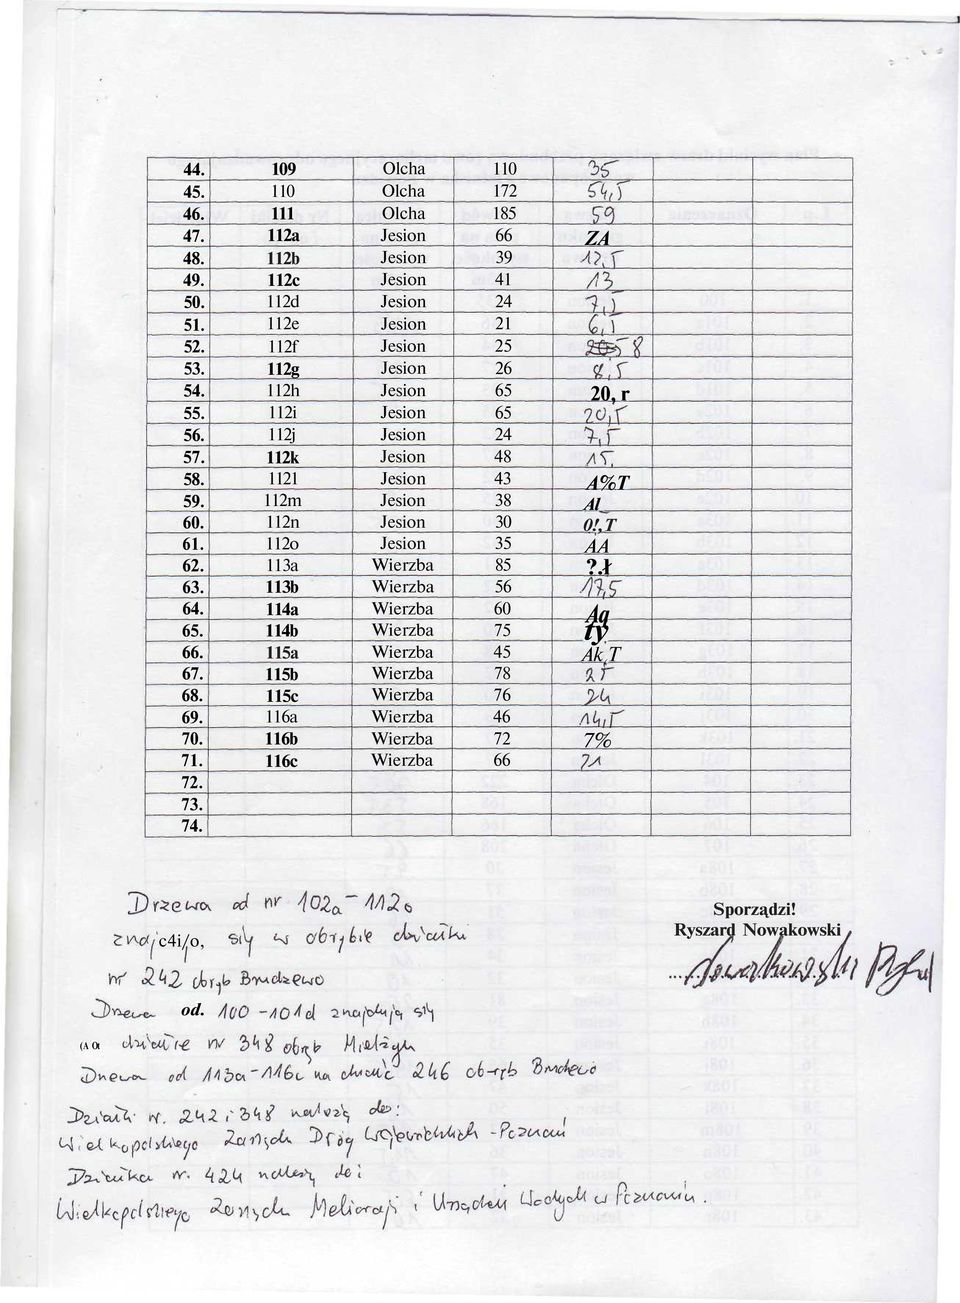 44. 109 Olcha 110 35
45. 110 Olcha 172 54,5
46. 111 Olcha 185 59
47. 112a Jesion 66 ZA
48. 112b Jesion 39 12,5
49. 112c Jesion 41 13
50. 112d Jesion 24 7,5
51. 112e Jesion 21 6,5
52. 112f Jesion 25 8
53. 112g Jesion 26 8,5
54. 112h Jesion 65 20, r
55. 112i Jesion 65 20,5
56. 112j Jesion 24 7,5
57. 112k Jesion 48 15,
58. 112l Jesion 43 A%T
59. 112m Jesion 38 Al_
60. 112n Jesion 30 0!,T
61. 112o Jesion 35 AA
62. 113a Wierzba 85 ?.ł
63. 113b Wierzba 56 17,5
64. 114a Wierzba 60 Aq
65. 114b Wierzba 75 ty
66. 115a Wierzba 45 Ak,T
67. 115b Wierzba 78 25
68. 115c Wierzba 76 24
69. 116a Wierzba 46 14,5
70. 116b Wierzba 72 7%
71. 116c Wierzba 66 21
72.
73.
74.
Drzewa od nr 102a - 112o
c4i/o, się w obrębie działki
nr 242 obręb Brudzewo
Drzewa od. 100 - 101d znajdują się
(A 0t działce nr 348 obręb
Drzewa od 113a - 116c na działce 246 obręb Brudzewo
Działki nr. 242 i 348 należą do:
Wielkopolskiego Zarządu Dróg Wojewódzkich - Poznań
Działka nr. 424 należy do:
Wielkopolskiego Zarządu Melioracji i Urządzeń Wodnych w Poznaniu.
Sporządzi!
Ryszard Nowakowski